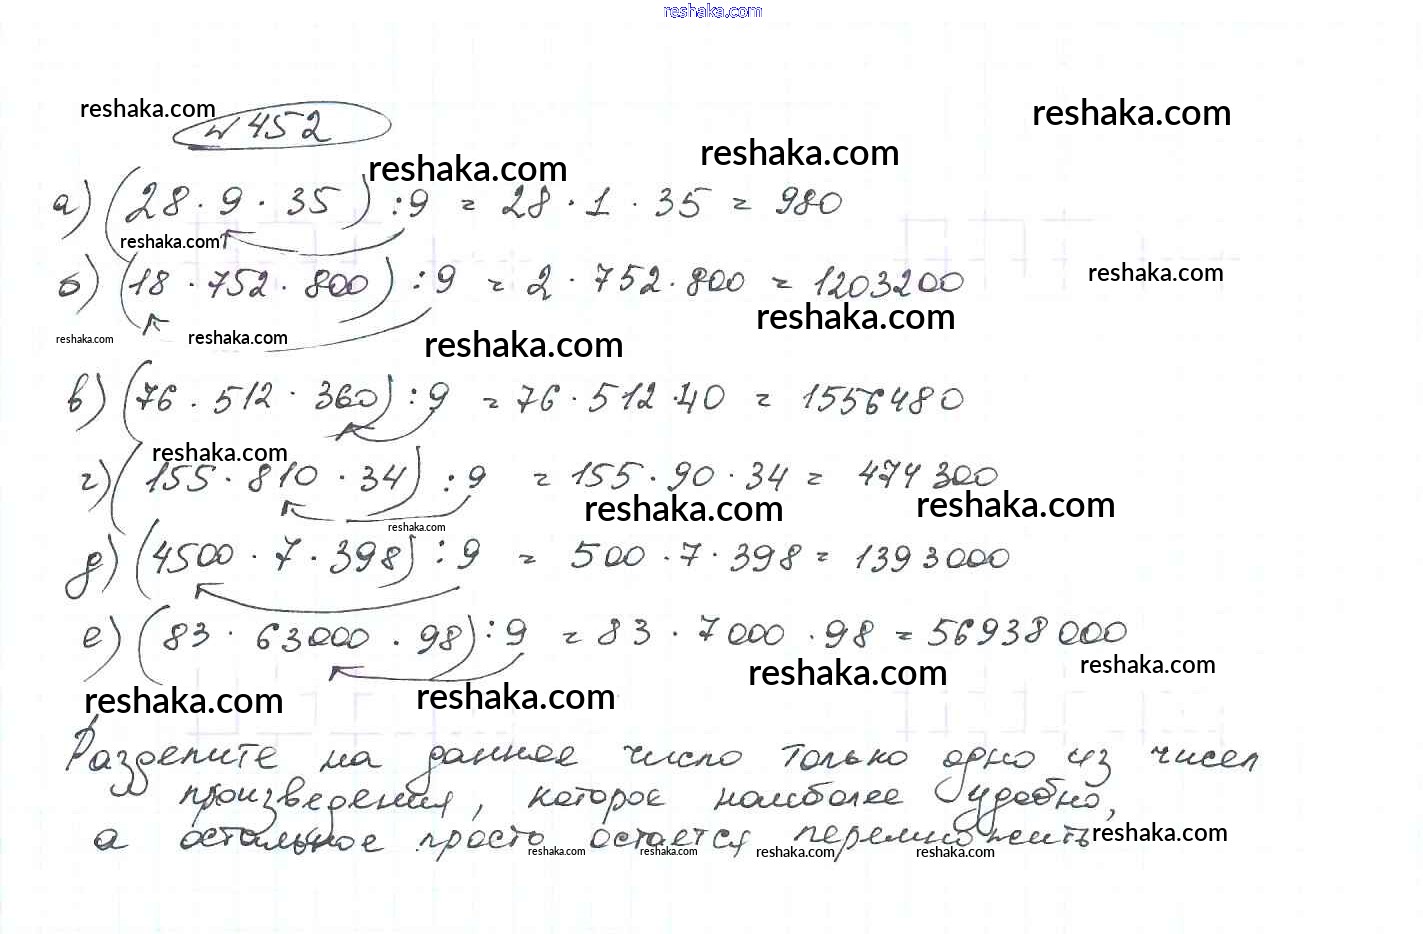 reshaka.com
reshaka.com
reshaka.com
№ 452
reshaka.com
reshaka.com
а) (28 · 9 · 35) : 9 = 28 · 1 · 35 = 980
reshaka.com
reshaka.com
б) (18 · 752 · 800) : 9 = 2 · 752 · 800 = 1203200
reshaka.com
reshaka.com
reshaka.com
reshaka.com
в) (76 · 512 · 360) : 9 = 76 · 512 · 40 = 1556480
reshaka.com
г) (155 · 810 · 34) : 9 = 155 · 90 · 34 = 474300
reshaka.com
reshaka.com
reshaka.com
д) (4500 · 7 · 398) : 9 = 500 · 7 · 398 = 1393000
е) (83 · 63000 · 98) : 9 = 83 · 7000 · 98 = 56938000
reshaka.com
reshaka.com
reshaka.com
reshaka.com
Разделите на данное число только одно из чисел
произведения, которое наиболее удобно,
а остальное просто остается перемножить
reshaka.com
reshaka.com
reshaka.com
reshaka.com
reshaka.com